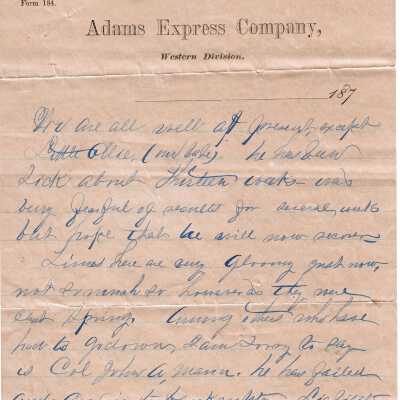 Form 184.
Adams Express Company,
Western Division.
187
We are all well at present except
little Ollie, (our baby). he has been
Sick about thirteen weeks was
very fearful of results for several weeks
but hope that he will now recover
Times here are very gloomy just now,
not so much so however as they were
last Spring. Among others who have
had to go down, I am Sorry to Say
is Col John A, Mason. he has failed
and